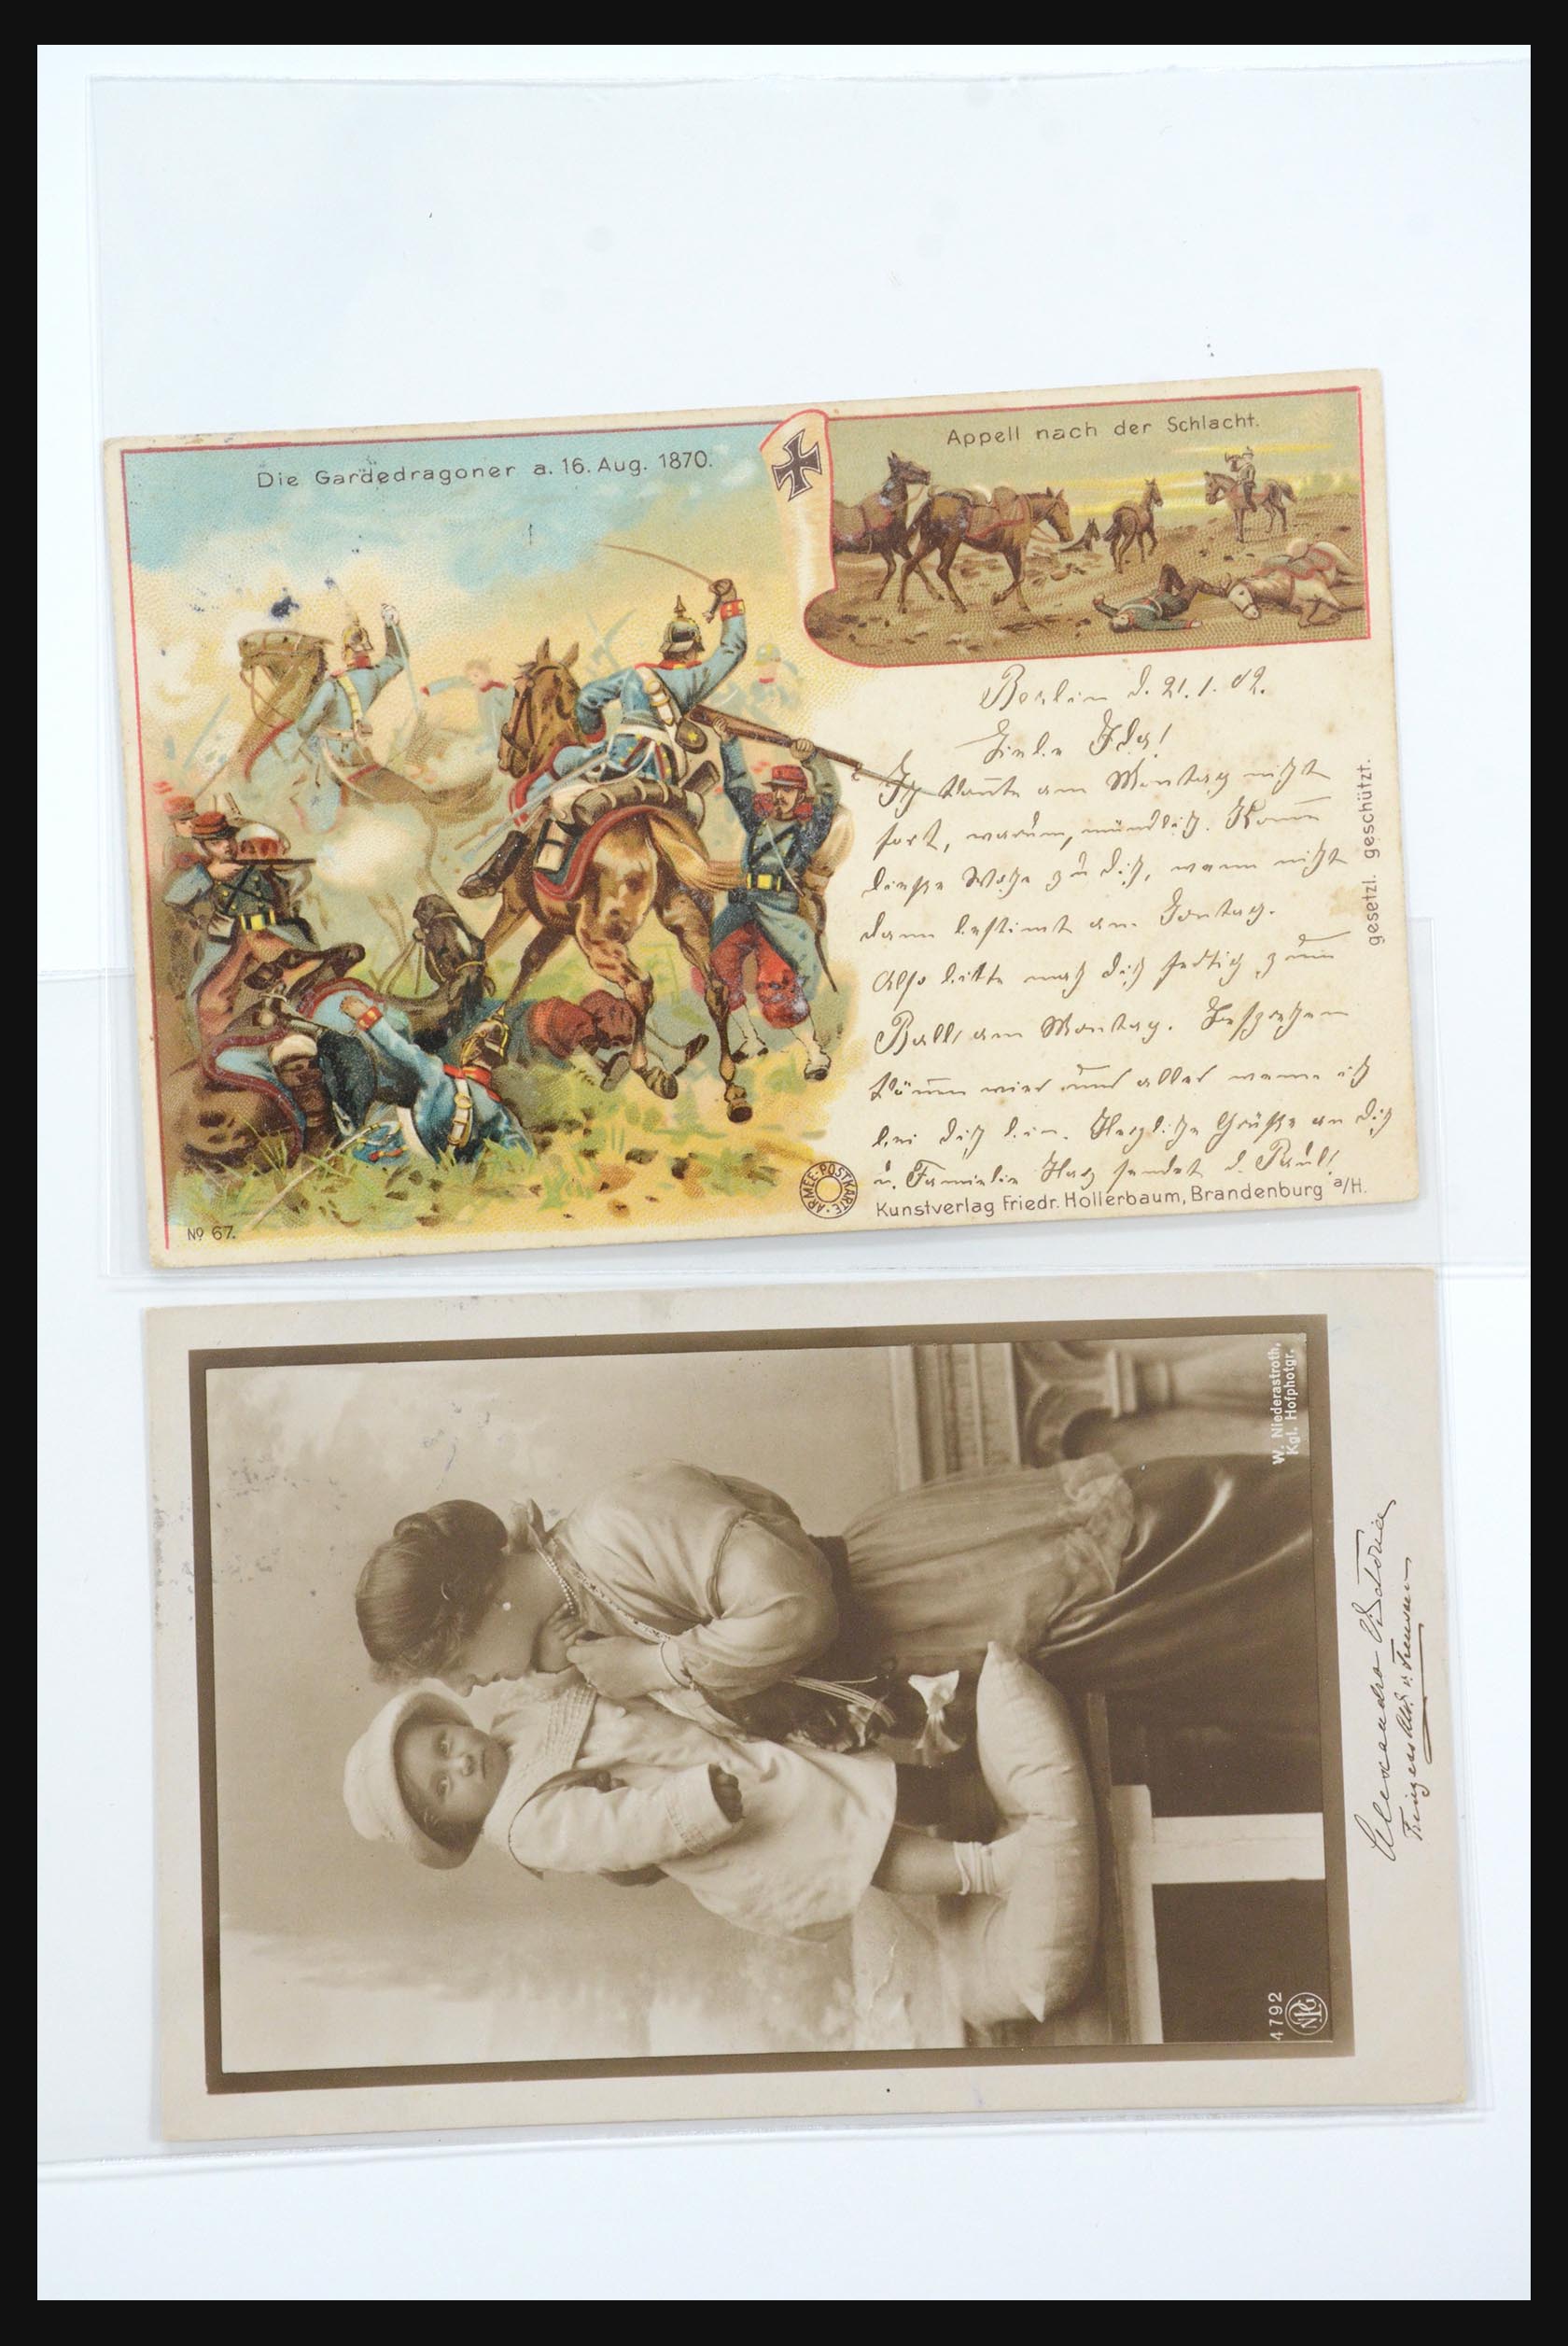 Die Gardedragoner a. 16. Aug. 1870.
Appell nach der Schlacht.
Berlin d. 21. 1. 02.
Liebe Ida!
Ich konnte am Montag nicht
fort, warum, mündlich. Komme
diese Woche zu dich, wenn nicht
dann bestimt am Sontag.
Also bitte mach dich fertig zum
Ball am Montag. Besprechen
können wier uns alles wenn ich
bei dich bin. Herzliche Grüße an dich
u. Familie sendet d. Paul!
gesetzl. geschützt.
ARMEE-POSTKARTE
Kunstverlag Friedr. Hollerbaum, Brandenburg a/H.
No 67.
W. Niederastroth,
Kgl. Hofphotgr.
4792
NPG
Alexandra Victoria
Prinzess Aug. W. v. Preussen